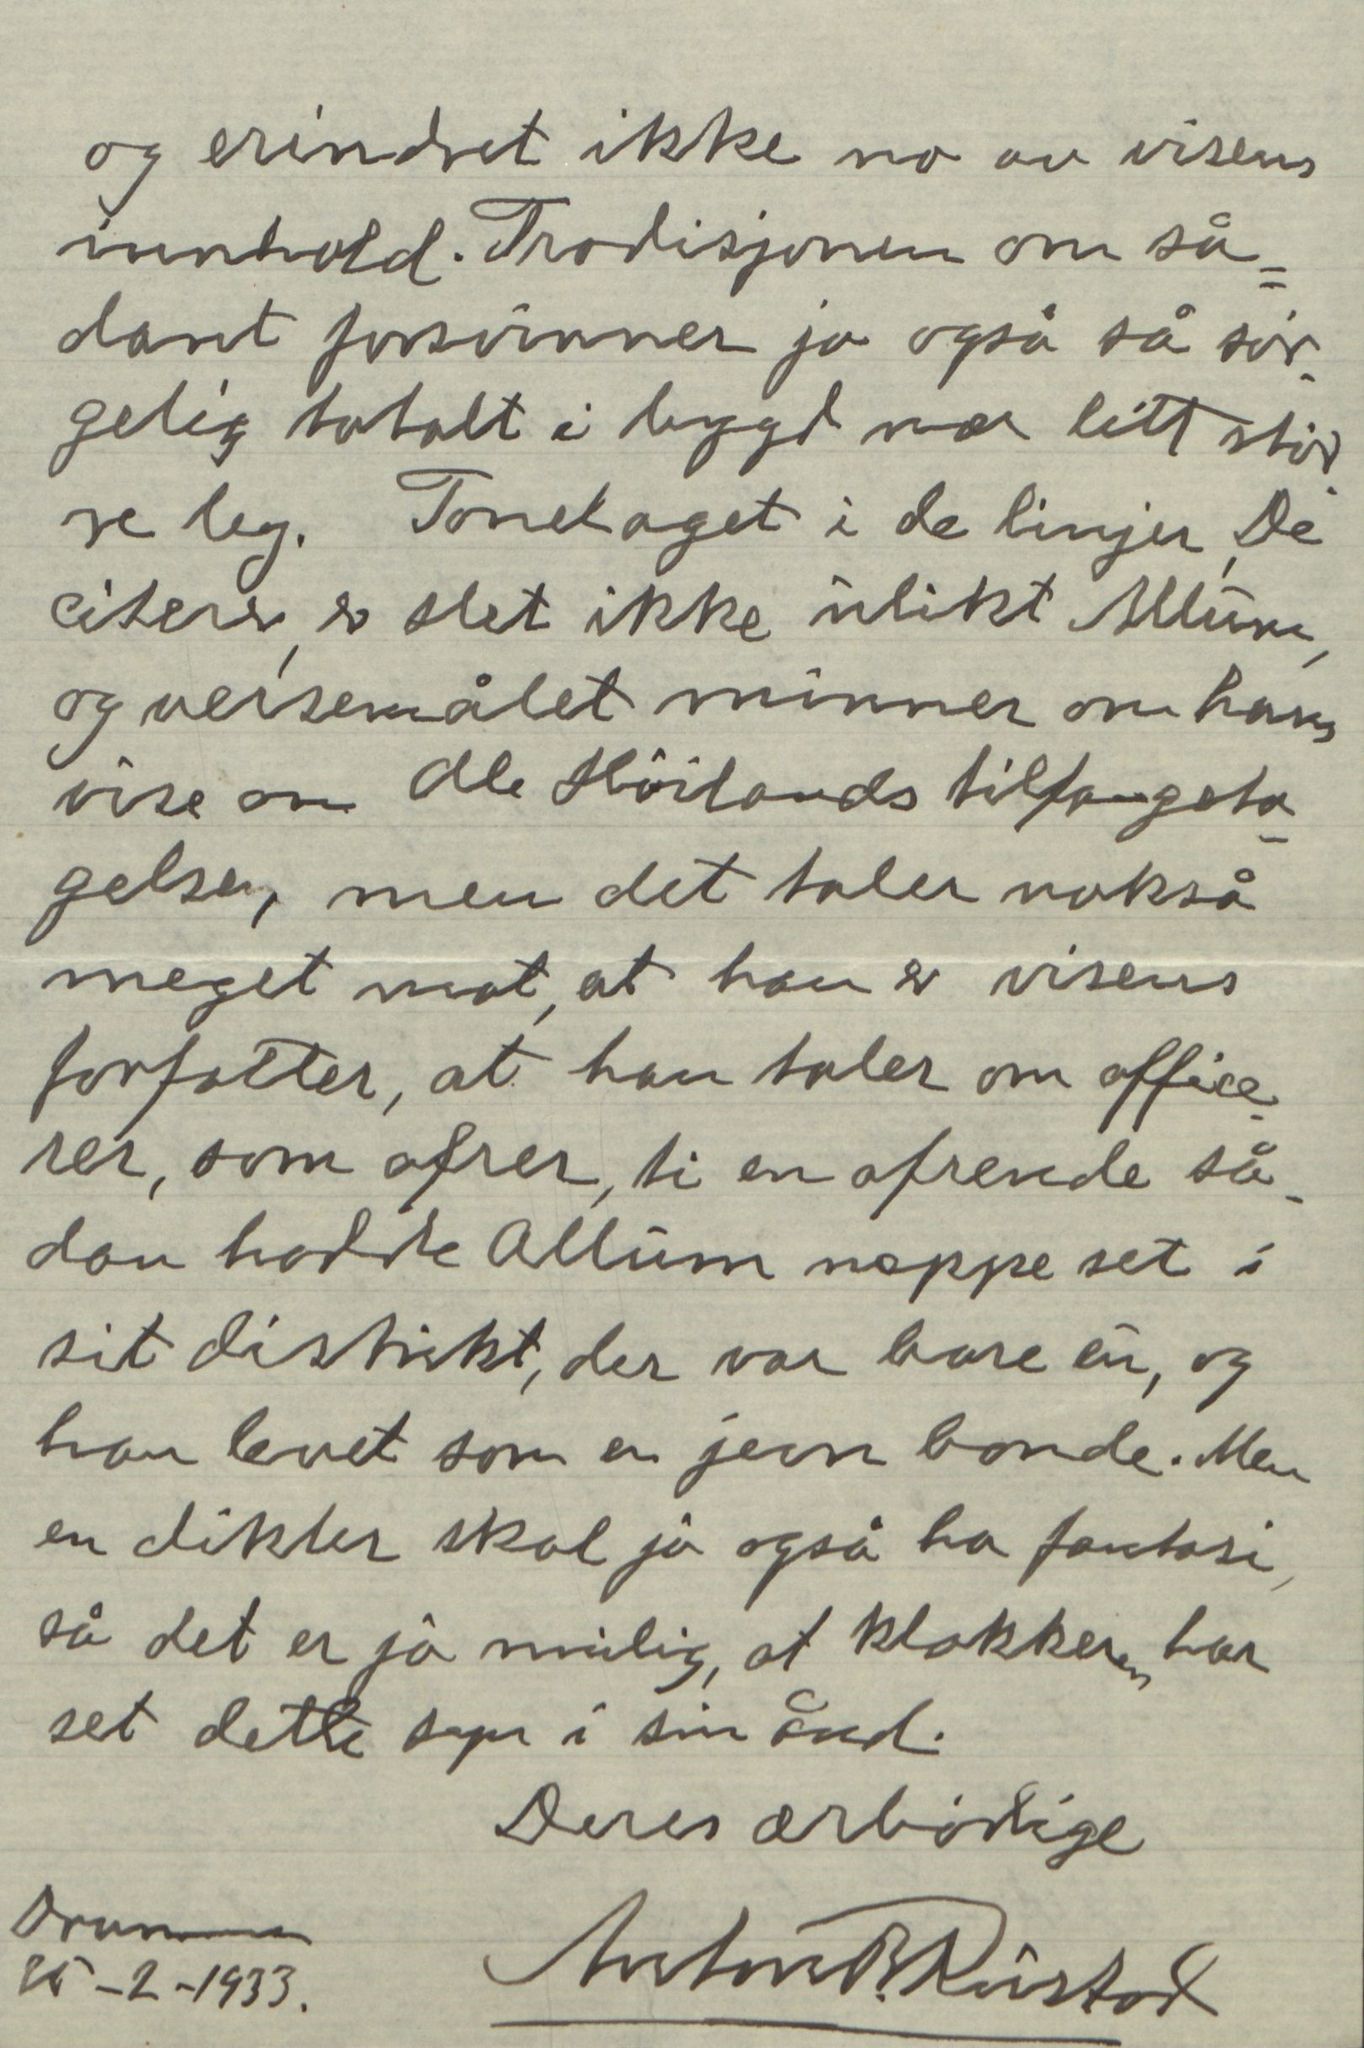 og erindret ikke no av visens
innhold. Tradisjonen om så=
dant forsvinner ja også så sør-
gelig totalt i bygd nær litt stør
re by. Tonelaget i de linjer De
citerer, er slet ikke ulikt Allum,
og versemålet minner om hans
vise om Ole Höilands tilfangeta-
gelse, men det taler også
meget mot, at han er visens
forfatter, at han taler om office-
rer, som ofrer, ti en ofrende så-
dan hadde Allum neppe set i
sit distrikt, der var bare én, og
han levet som en jevn bonde. Men
en dikter skal jo også ha fantasi,
så det er jo mulig, at klokkeren har
set dette syn i sin ånd.
Deres ærbödige
Drammen
25-2-1933.
Anton B. Rustad